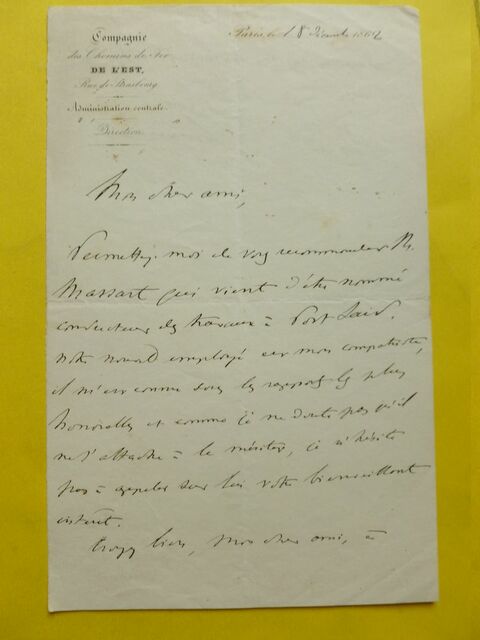 Compagnie
des Chemins de Fer
DE L'EST,
Rue de Strasbourg
Administration centrale
Direction
Paris, le 18 Décembre 1862
Mon cher ami,
Permettez-moi de vous recommander M.
Massart qui vient d'être nommé
conducteur des travaux à Port Saïd.
Votre nouvel employé est mon compatriote,
il m'est connu sous les rapports les plus
honorables et comme je ne doute pas qu'il
ne s'attache à le mériter, je n'hésite
pas à appeler sur lui votre bienveillant
intérêt.
Croyez bien, mon cher ami, à